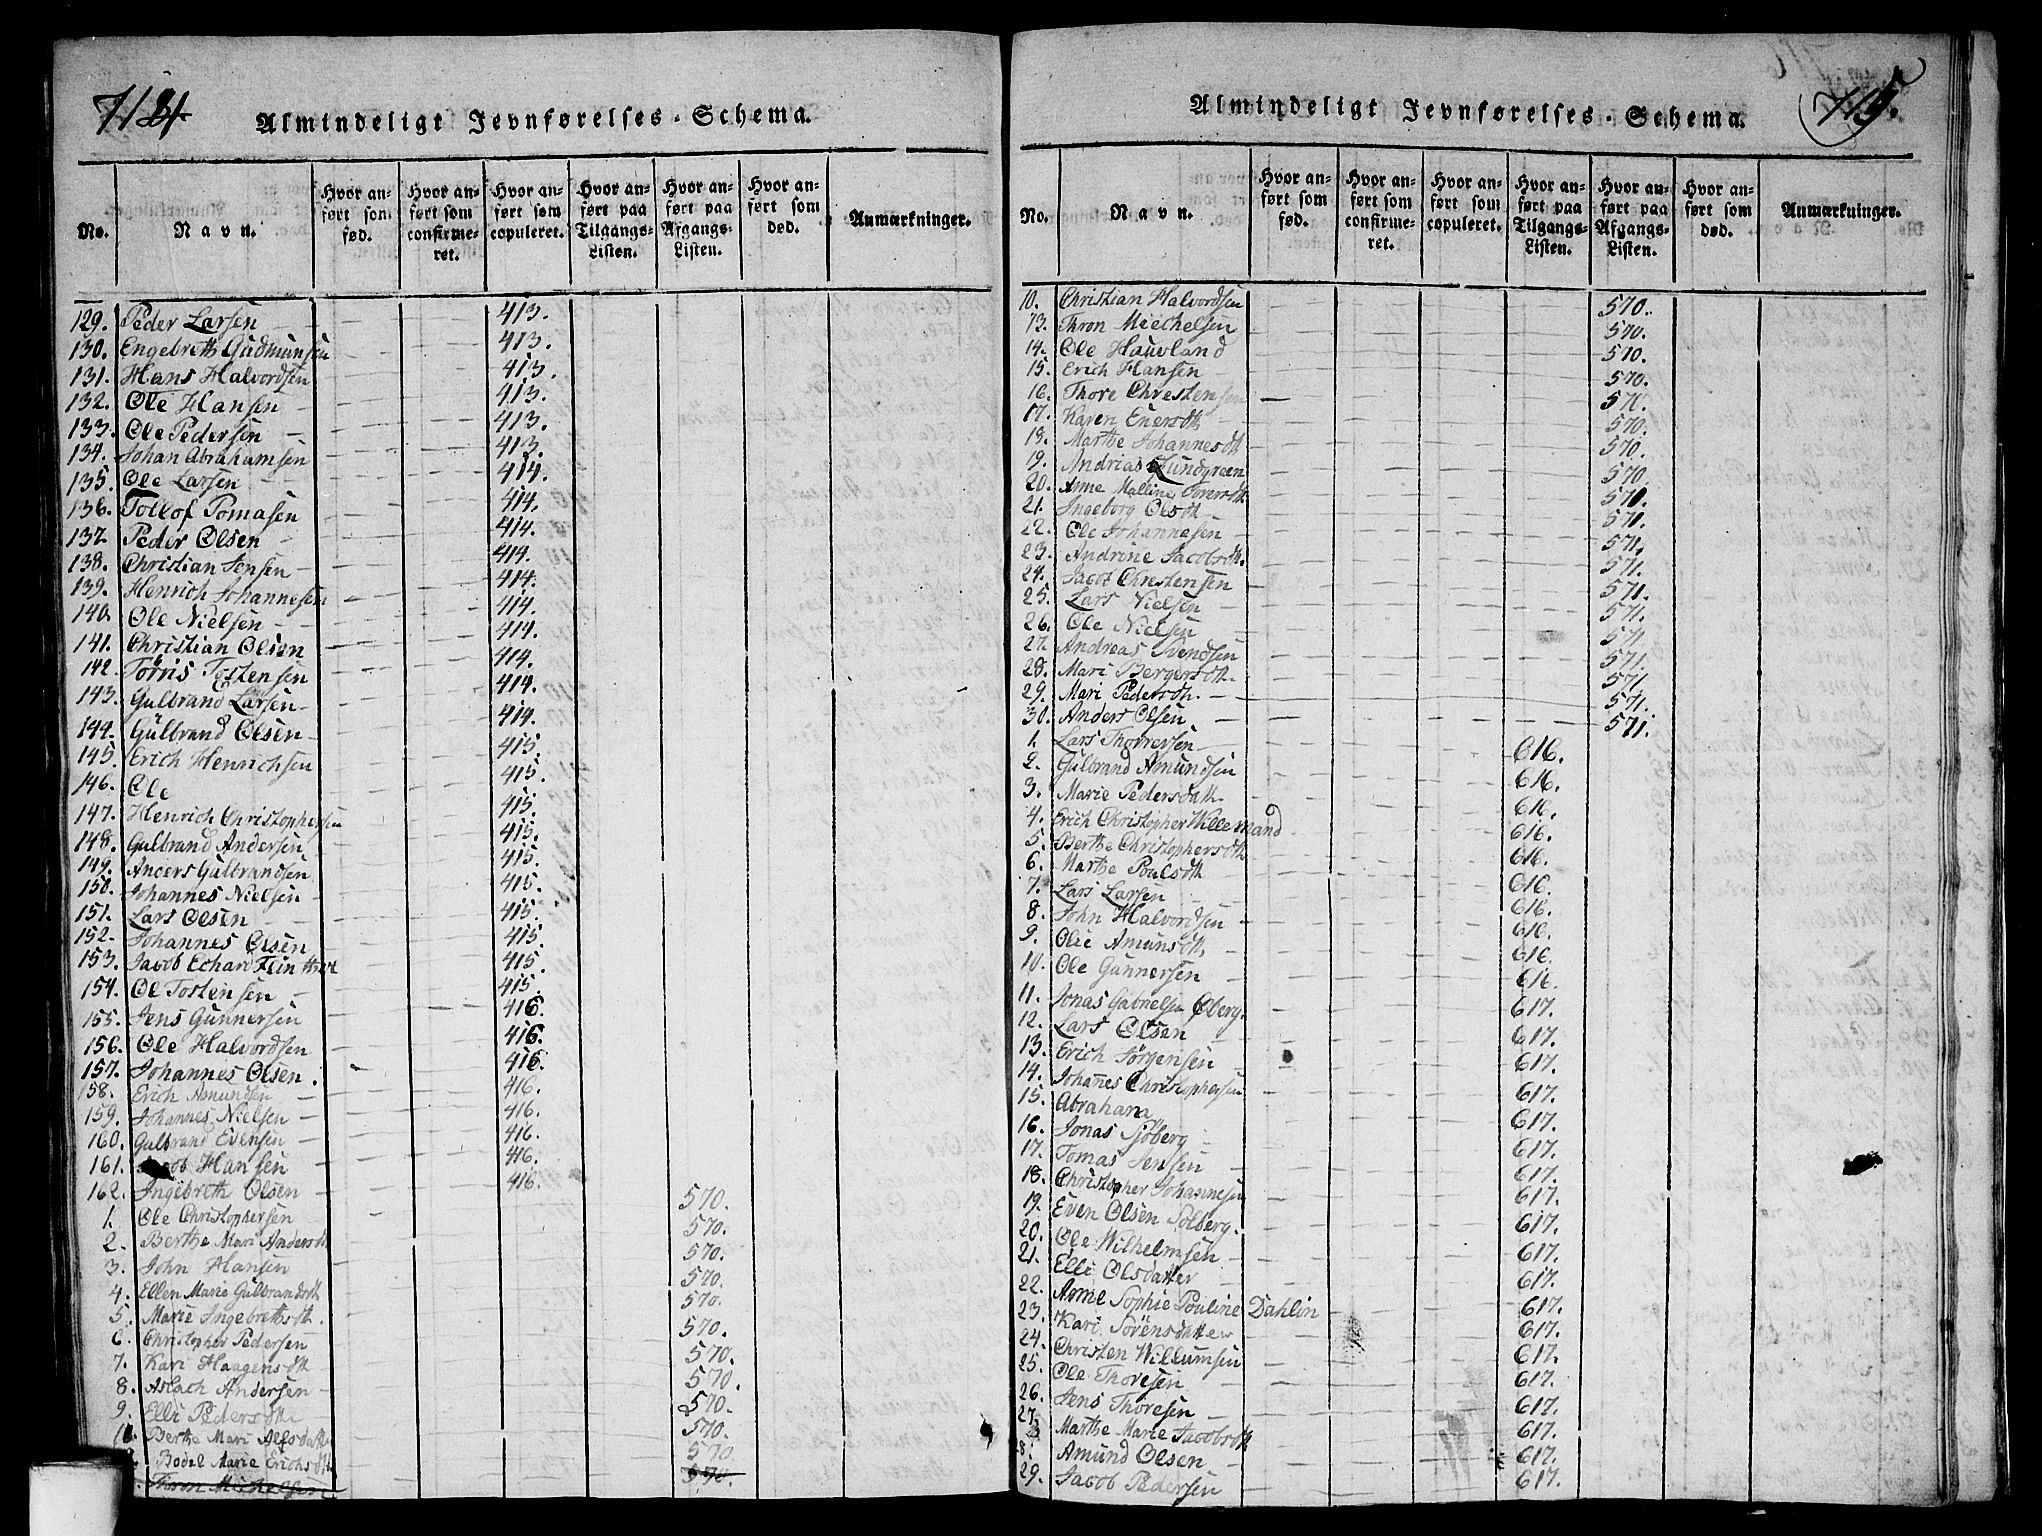 714
Almindeligt Jevnførelses-Schema.
No.
Navn.
Hvor anført som fød.
Hvor anført som confirmeret.
Hvor anført som copuleret.
Hvor anført paa Tilgangs-Listen.
Hvor anført paa Afgangs-Listen.
Hvor anført som død.
Anmærkninger.
129. Peder Larsen 413.
130. Engebreth Gudmunsen 413.
131. Hans Halvordsen 413.
132. Ole Hansen 413.
133. Ole Pedersen 413.
134. Johan Abrahamsen 413.
135. Ole Larsen 414.
136. Tollof Tomasen 414.
137. Peder Olsen 414.
138. Christian Jensen 414.
139. Henrich Johannesen 414.
140. Ole Nielsen 414.
141. Christian Olsen 414.
142. Törris Tostensen 414.
143. Gulbrand Larsen 414.
144. Gülbrand Olsen 414.
145. Erich Henrichsen 415.
146. Ole 415.
147. Henrich Christophersen 415.
148. Gulbrand Andersen 415.
149. Anders Gulbrandsen 415.
150. Johannes Nielsen 415.
151. Lars Olsen 415.
152. Johannes Olsen 415.
153. Jacob Echard 415.
154. Ol Tostensen 415.
155. Jens Gunnersen 416.
156. Ole Halvordsen 416.
157. Johannes Olsen. 416.
158. Erich Amundsen 416.
159. Johannes Nielsen 416.
160. Gulbrand Evensen 416.
161. Jacob Hansen 416.
162. Ingebreth Olsen 416.
1. Ole Christophersen 570.
2. Berthe Mari Andersdt 570.
3. John Hansen 570.
4. Ellen Marie Gulbrandsdt 570.
5. Marie Ingebrethsdt. 570.
6. Christopher Pedersen 570.
7. Kari Haagensdt 570.
8. Aslach Andersen 570.
9. Elli Pedersdtt 570.
Berthe Mari Alfsdatter 570.
Bodel Marie Erichsdtt 570
Thron Michelsen 570.
715.
Almindeligt Jevnførelses-Schema.
No.
Navn.
Hvor anført som fød.
Hvor anført som confirmeret.
Hvor anført som copuleret.
Hvor anført paa Tilgangs-Listen.
Hvor anført paa Afgangs-Listen.
Hvor anført som død.
Anmærkninger.
10. Christian Halvordsen 570.
13. Thron Miechelsen 570.
14. Ole Hauvland 570.
15. Erich Hansen 570.
16. Thore Chrestensen 570.
17. Karen Enersdt 570.
18. Marthe Johannesdt 570.
19. Andrias Lundgreen 570.
20. Anne Malline Torersdt. 571.
21. Ingeborg Olsdt 571.
22. Ole Johannesen 571.
23. Andrine Jacobsdt. 571.
24. Jacob Chrestensen 571.
25. Lars Nielsen 571.
26. Ole Nielsen 571
27. Andreas Svendsen 571.
28. Mari Bergersdt. 571
29. Mari Pedersdt. 571.
30. Anders Olsen 571.
1. Lars Thorersen 616.
2. Gulbrand Amundsen 616.
3. Marie Pedersdatt. 616.
4. Erich Christopher Willemand 616.
5. Berthe Christophersdt 616.
6. Marthe Poulsdt 616.
7. Lars Larsen 616.
8. John Halvordsen 616.
9. Olie Amunsdt, 616.
10. Ole Gunnersen 616.
11. Jonas Gabrielsen Øberg. 617.
12. Lars Olsen 617.
13. Erich Jörgensen 617.
14. Johannes Christophersen 617.
15. Abraham 617.
16. Jonas Sjöberg 617.
17. Tomas Jensen 617.
18. Christopher Johannesen 617.
19. Even Olsen Solberg. 617.
20. Ole Wilhelmsen 617.
21. Elli Olsdatter 617.
22. Anne Sophie Pouline Dahlin 617.
23. Kari Sörensdatter 617.
24. Christen Willumsen 617.
25. Ole Thoresen 617.
26. Jens Thoresen 617.
27. Marthe Marie Jacobsdt 617.
8. Amund Olsen 617.
29. Jacob Pedersen 617.